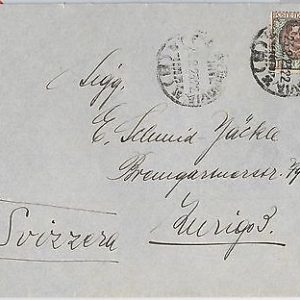 Sigg.
E. Schmid-Jäckle
Bremgartnerstr. 79
Zurigo 3.
Svizzera